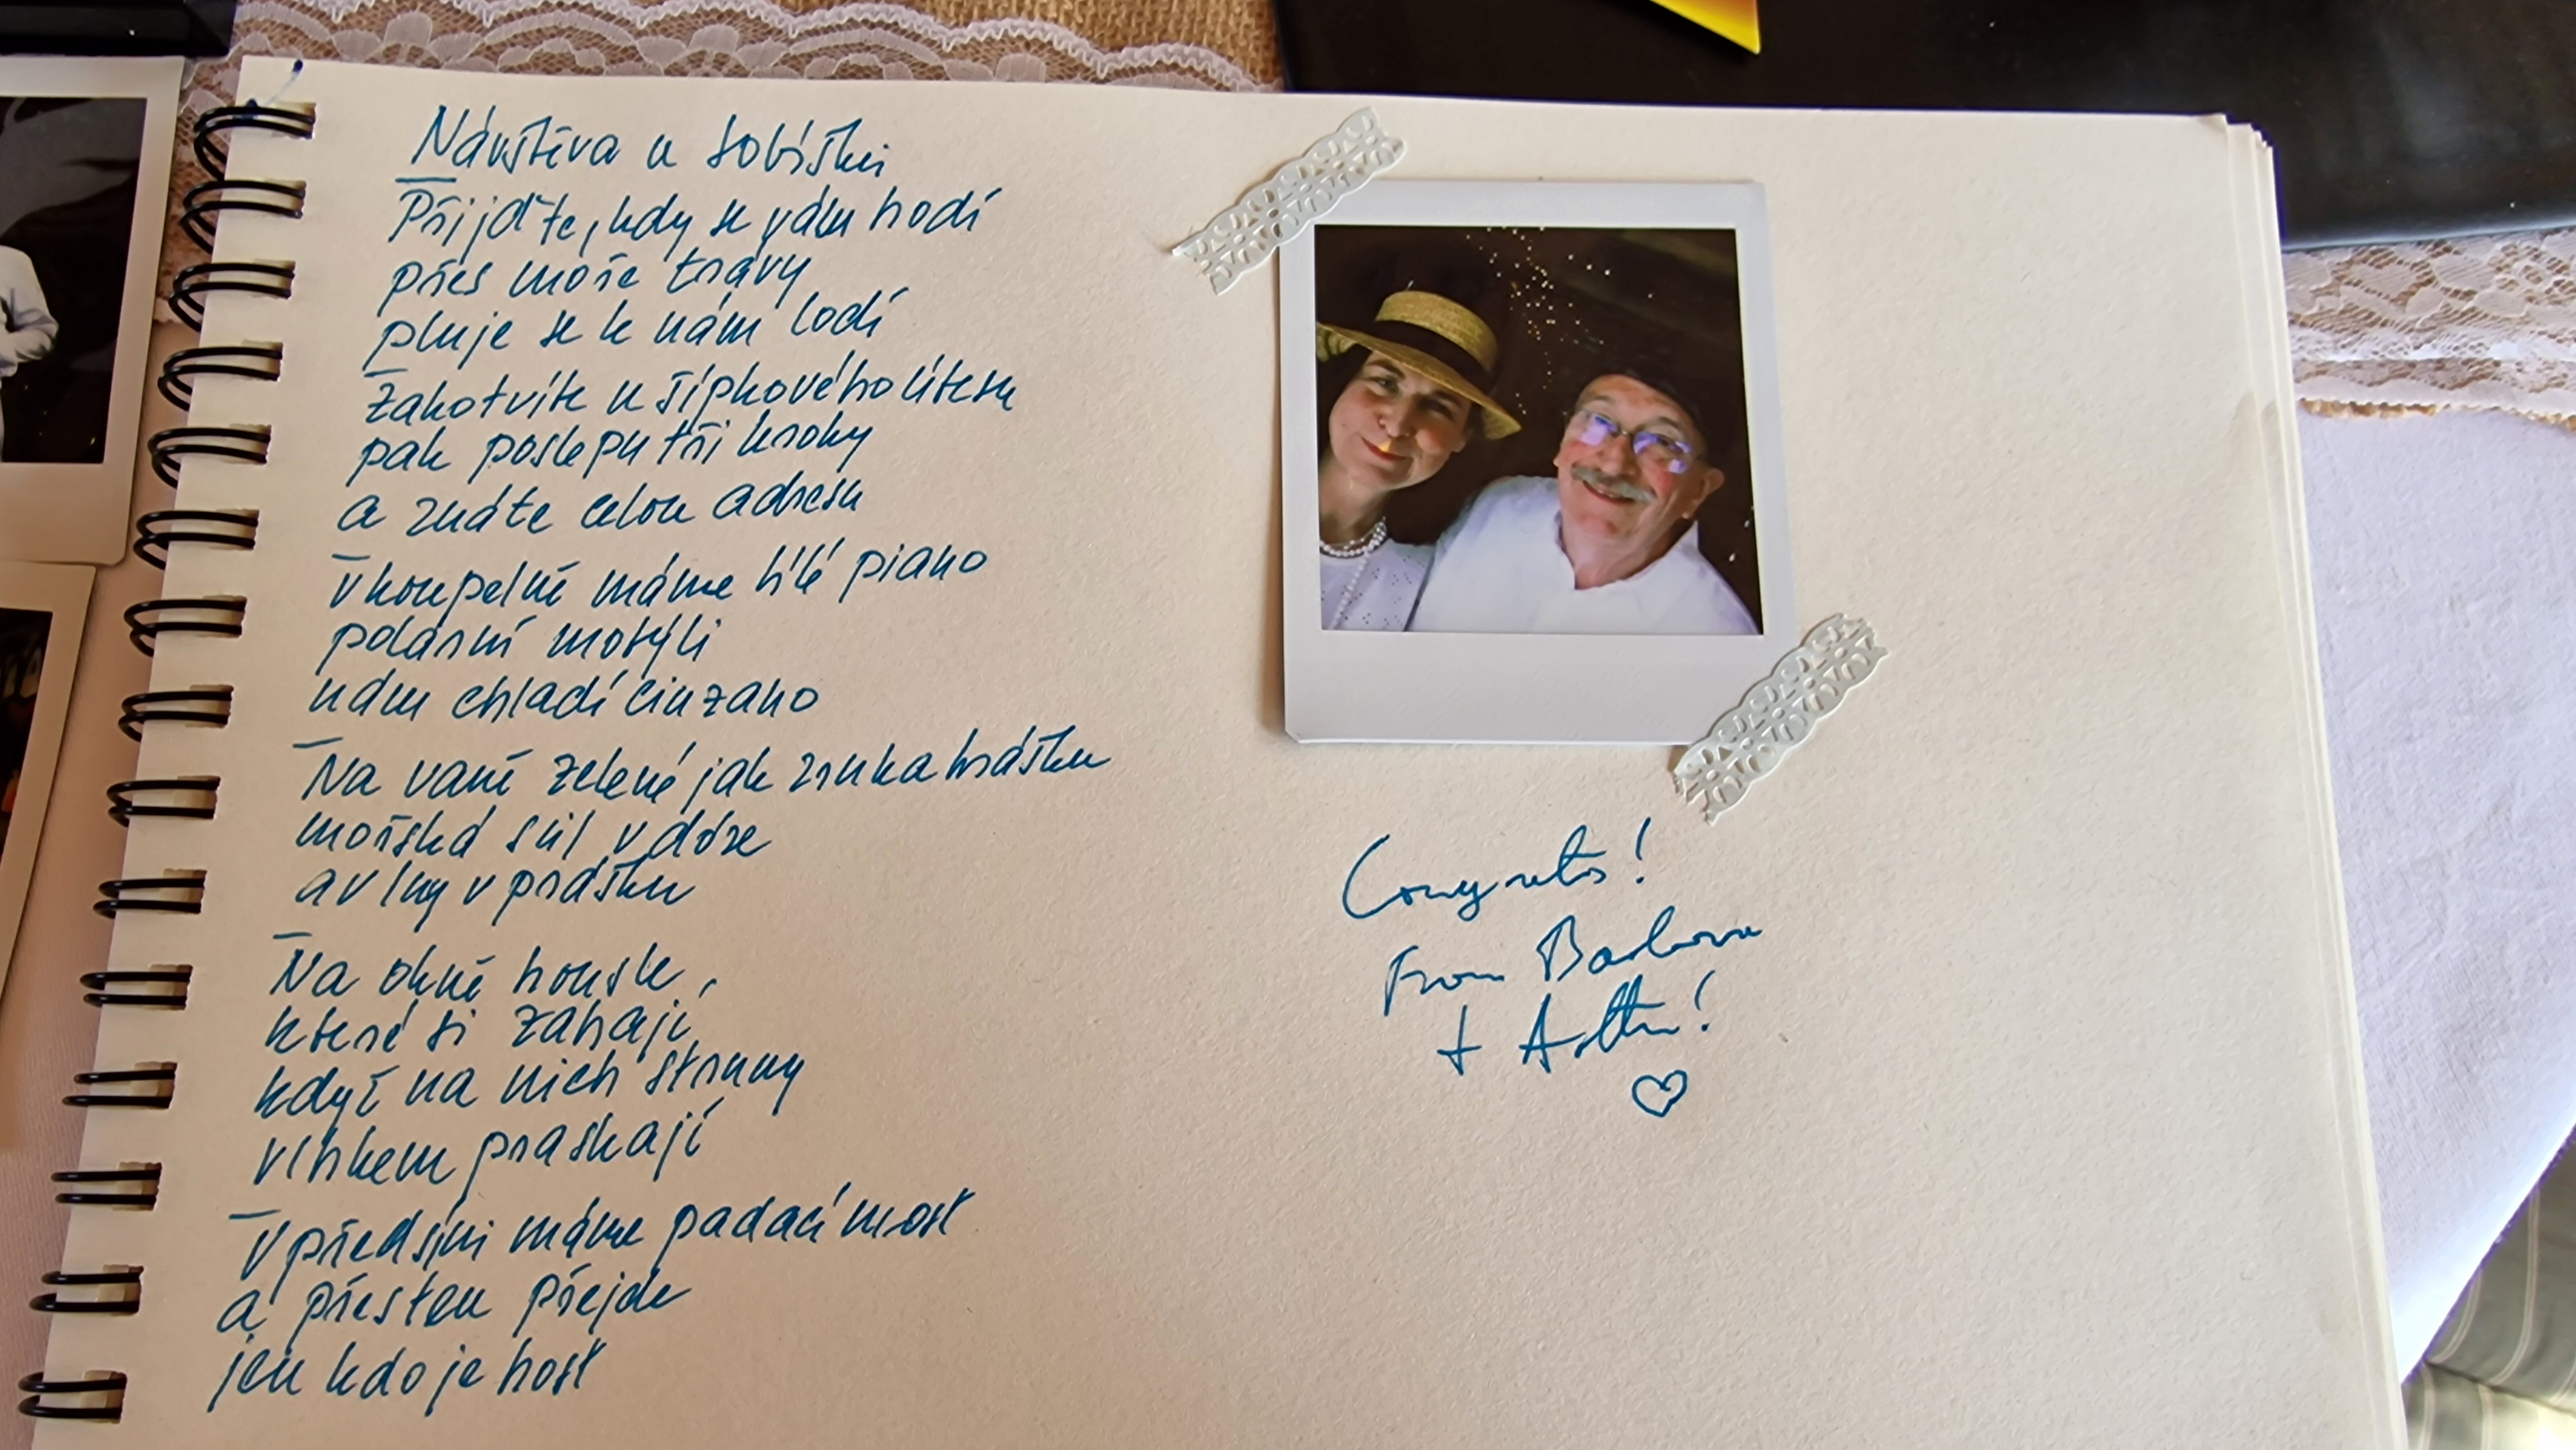 Návštěva u Sobíšků
Přijďte, kdy se vám hodí
přes moře trávy
pluje se k nám lodí
Zakotvíte u šípkového útesu
pak poslepu tři kroky
a znáte celou adresu
V koupelně máme bílé piano
polární motýli
nám chladí cinzano
Na vaně zelené jak zrnka hrášku
mořská sůl v dóze
a vlny v prášku
Na okně housle,
které si zahají
když na nich struny
vlhkem praskají
V předsíni máme padací most
a přes ten přejde
jen kdo je host
Congrats!
From Barbora
+ Arthur!